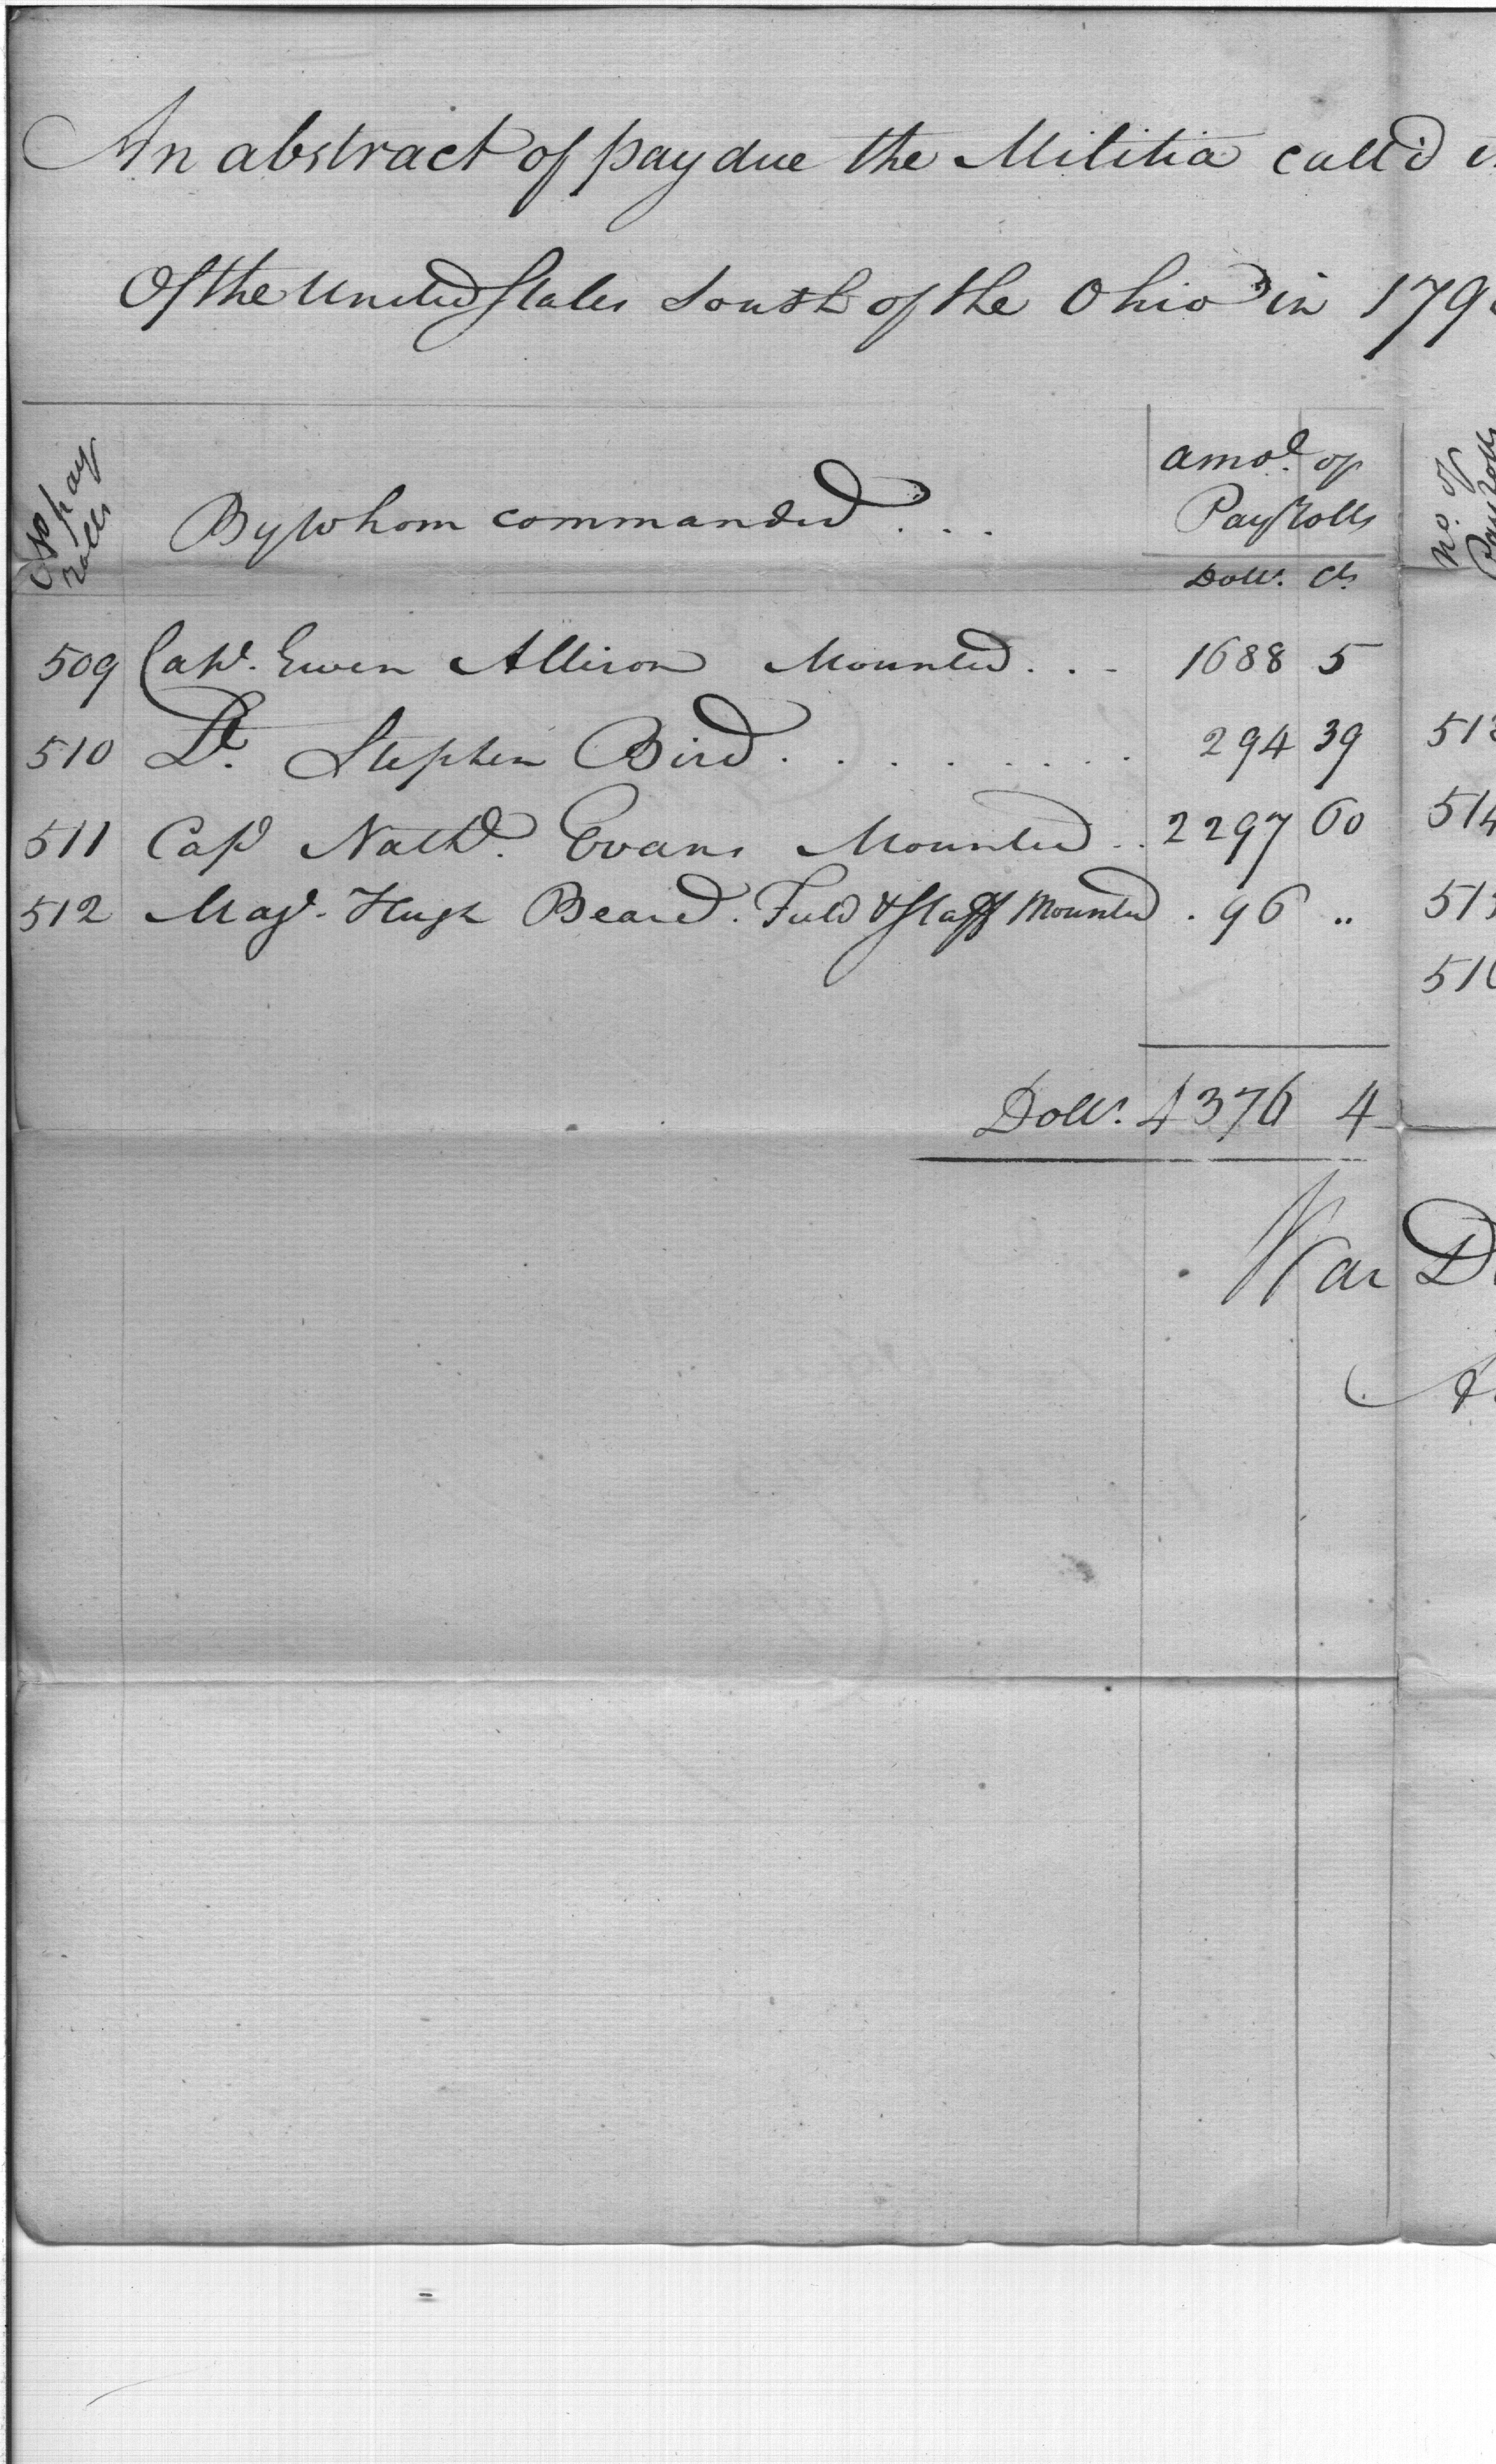 An abstract of pay due the Militia call'd
Of the United States South of the Ohio in 179
No pay
rolls
By whom commanded . . .
amot. of
Pay rolls
Dolls. Cts
no. of
Pay rolls
509 Capt. Ewen Allison Mounted . . . 1688 5
510 Lt. Stephen Bird . . . . . . . . . 294 39
511 Capt Nathl. Evans Mounted . . 2297 60 514
512 Majr. Hugh Beard. Field & Staff Mounted . 96 "
Dolls. 4376 4
War D